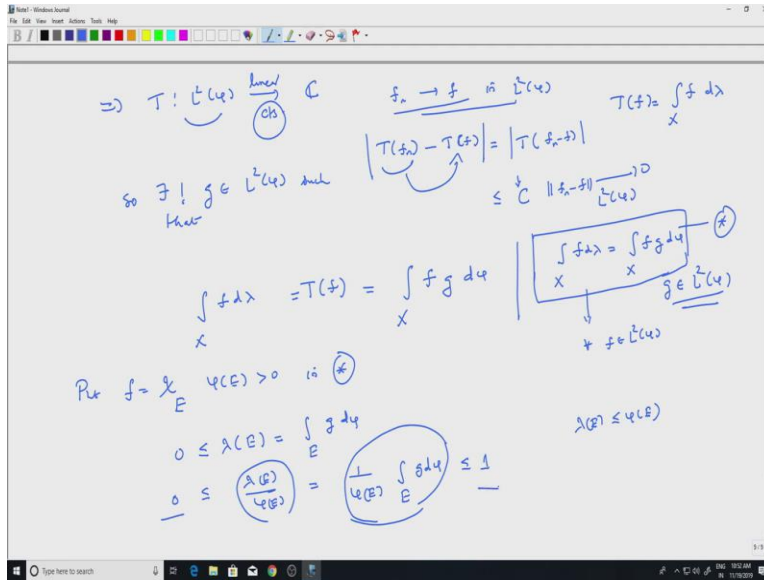 Note1 - Windows Journal
File Edit View Insert Actions Tools Help
⇒ T : L²(φ) linear → cts ℂ
f_n → f in L²(φ)
T(f) = ∫_X f dλ
|T(f_n) - T(f)| = |T(f_n - f)|
≤ C ||f_n - f||_{L²(φ)} → 0
So ∃! g ∈ L²(φ) such
that
∫_X f dλ = T(f) = ∫_X f g dφ
∫_X f dλ = ∫_X f g dφ — *
g ∈ L²(φ)
∀ f ∈ L²(φ)
Put f = χ_E φ(E) > 0 in *
0 ≤ λ(E) = ∫_E g dφ
λ(E) ≤ φ(E)
0 ≤ λ(E)/φ(E) = 1/φ(E) ∫_E g dφ ≤ 1
5/5
Type here to search
ENG 10:12 AM
IN 11/19/2019